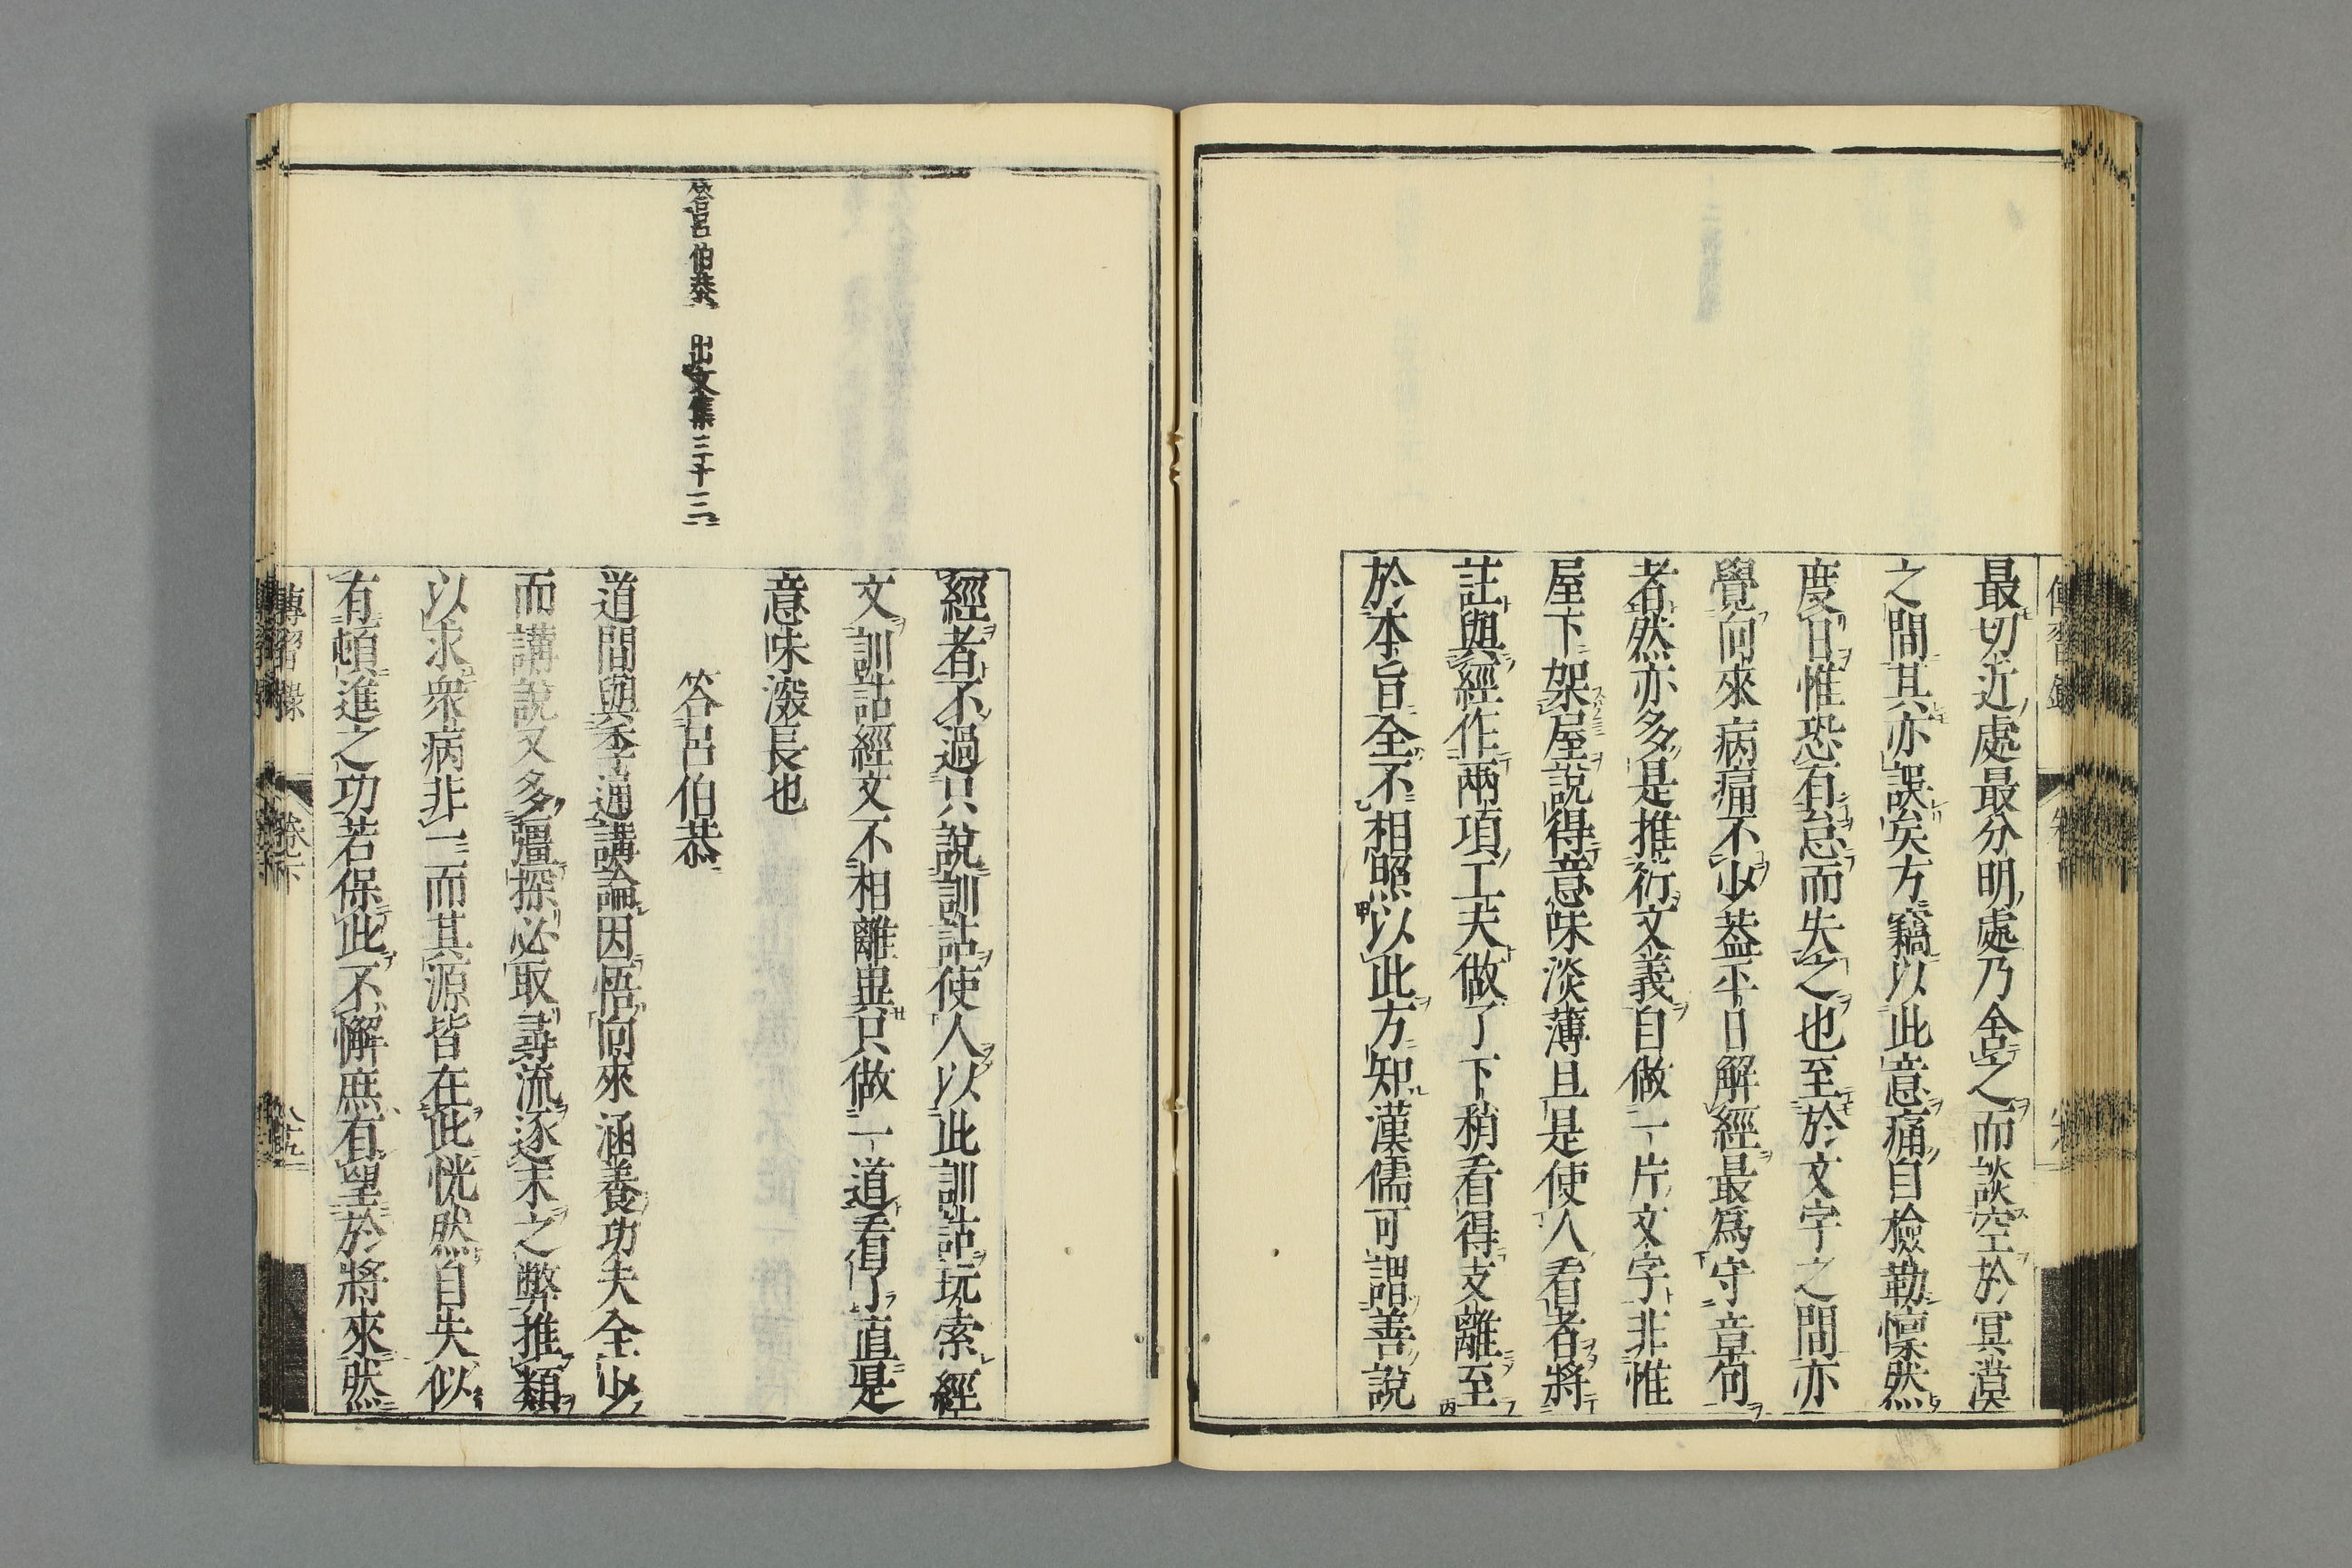 最切近處最分明處乃舍之而談空於冥漠
之間其亦誤矣方竊以此意痛自檢勒懍然
度日惟恐有怠而失之也至於文字之間亦
覺向來病痛不少蓋平日解經最爲守章句
者然亦多是推衍文義自做一片文字非惟
屋下架屋說得意味淡薄且是使人看者將
註與經作兩項工夫做了下稍看得支離至
於本旨全不相照以此方知漢儒可謂善說
經者不過只說訓詁使人以此訓詁玩索經
文訓詁經文不相離異只做一道看了直是
意味深長也
答呂伯恭 出文集三十三
答呂伯恭
道間與季通講論因悟向來涵養功夫全少
而講說又多彊探必取尋流逐末之弊推類
以求衆病非一而其源皆在此恍然自失似
有頓進之功若保此不懈庶有望於將來然
傳習錄 卷下